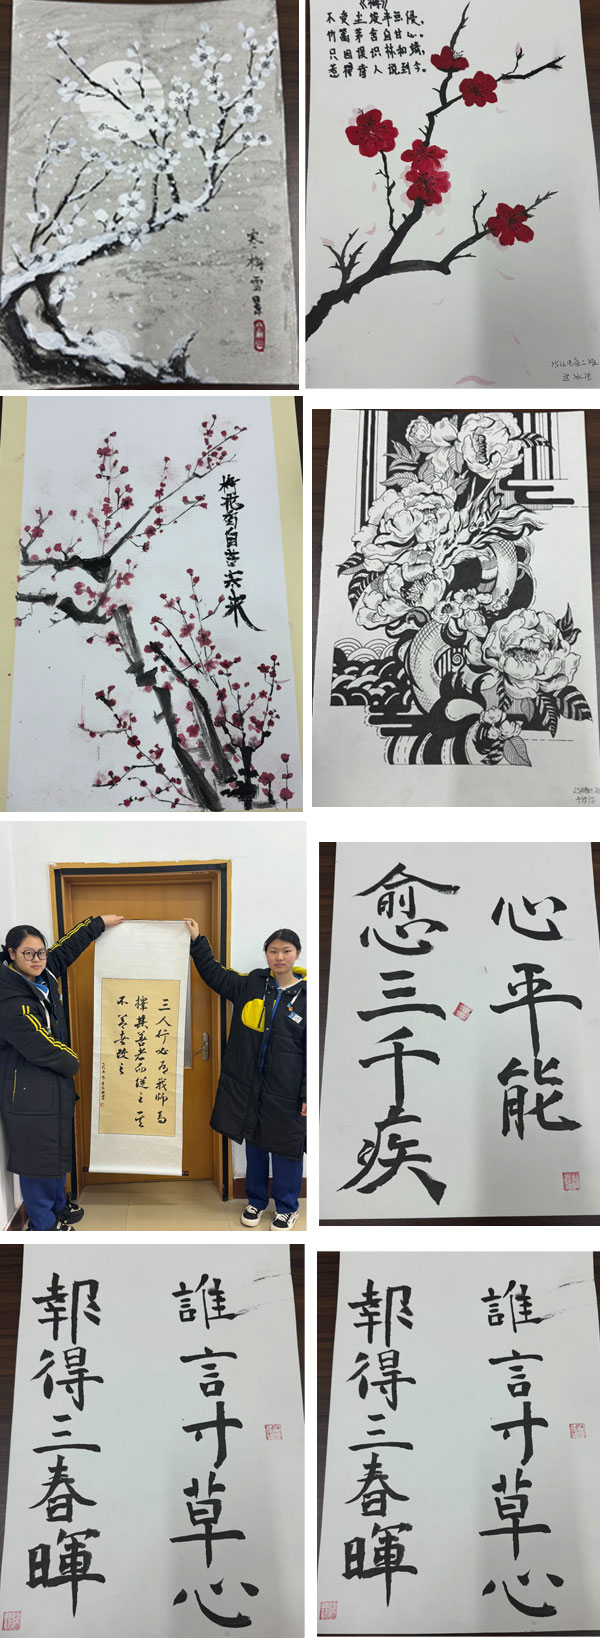 寒梅雪景
《梅》
不受尘埃半点侵,
竹篱茅舍自甘心。
只因误识林和靖,
惹得诗人说到今。
梅花香自苦寒来
三人行必有我師焉
擇其善者而從之其
不善者改之
心平能
愈三千疾
誰言寸草心
報得三春暉
誰言寸草心
報得三春暉